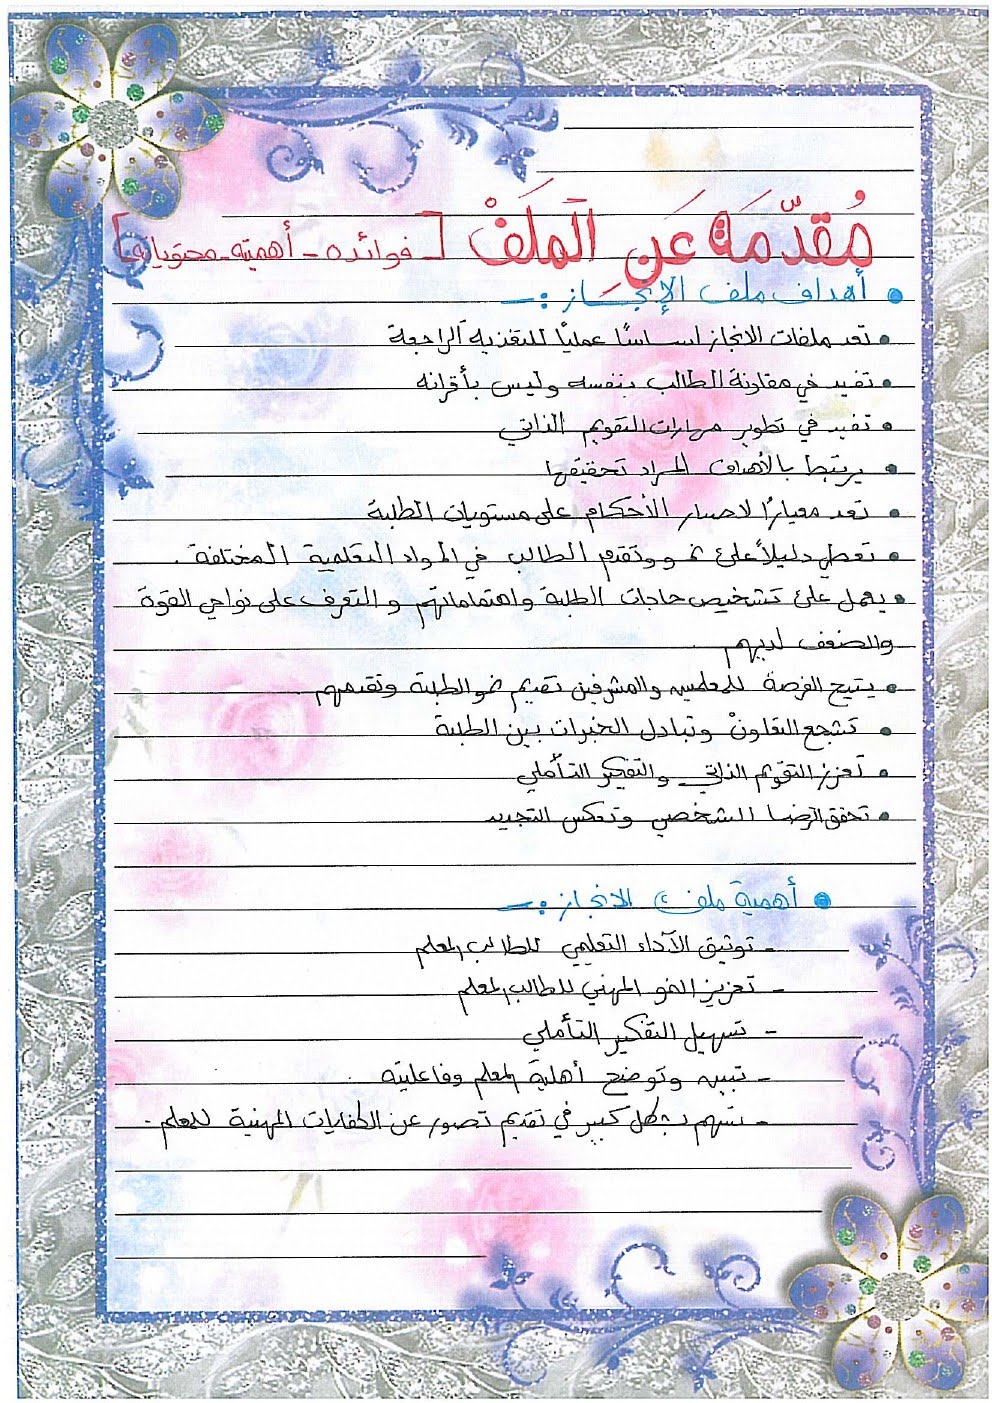 مُقدّمَة عَن المَلَفْ [ فوائده - أهميته - محتوياته ]
• أهداف ملف الإنجاز :-
• تعد ملفات الانجاز اساسًا عمليًا للتغذية الراجعة
• تفيد في مقارنة الطالب بنفسه وليس بأقرانه
• تفيد في تطوير مهارات التقويم الذاتي
• يرتبط بالأهداف المراد تحقيقها
• تعد معيارًا لاصدار الأحكام على مستويات الطلبة
• تعطي دليلاً على نمو وتقدم الطالب في المواد التعلمية المختلفة .
• يعمل على تشخيص حاجات الطلبة واهتماماتهم و التعرف على نواحي القوة
والضعف لديهم
• يتيح الفرصة للمعلمين والمشرفين تقييم نمو الطلبة وتقدمهم
• تشجع التعاونْ وتبادل الخبرات بين الطلبة
• تعزز التقويم الذاتي والتفكير التأملي
• تحقق الرضا الشخصي وتعكس التجديد
• أهمية ملف الانجاز :-
- توثيق الآداء التعليمي للطالب المعلم
- تعزيز النمو المهني للطالب المعلم
- تسهيل التفكير التأملي
- تبين وتوضح أهلية المعلم وفاعليته
- تسهم بشكل كبير في تقديم تصور عن الكفايات المهنية للمعلم .